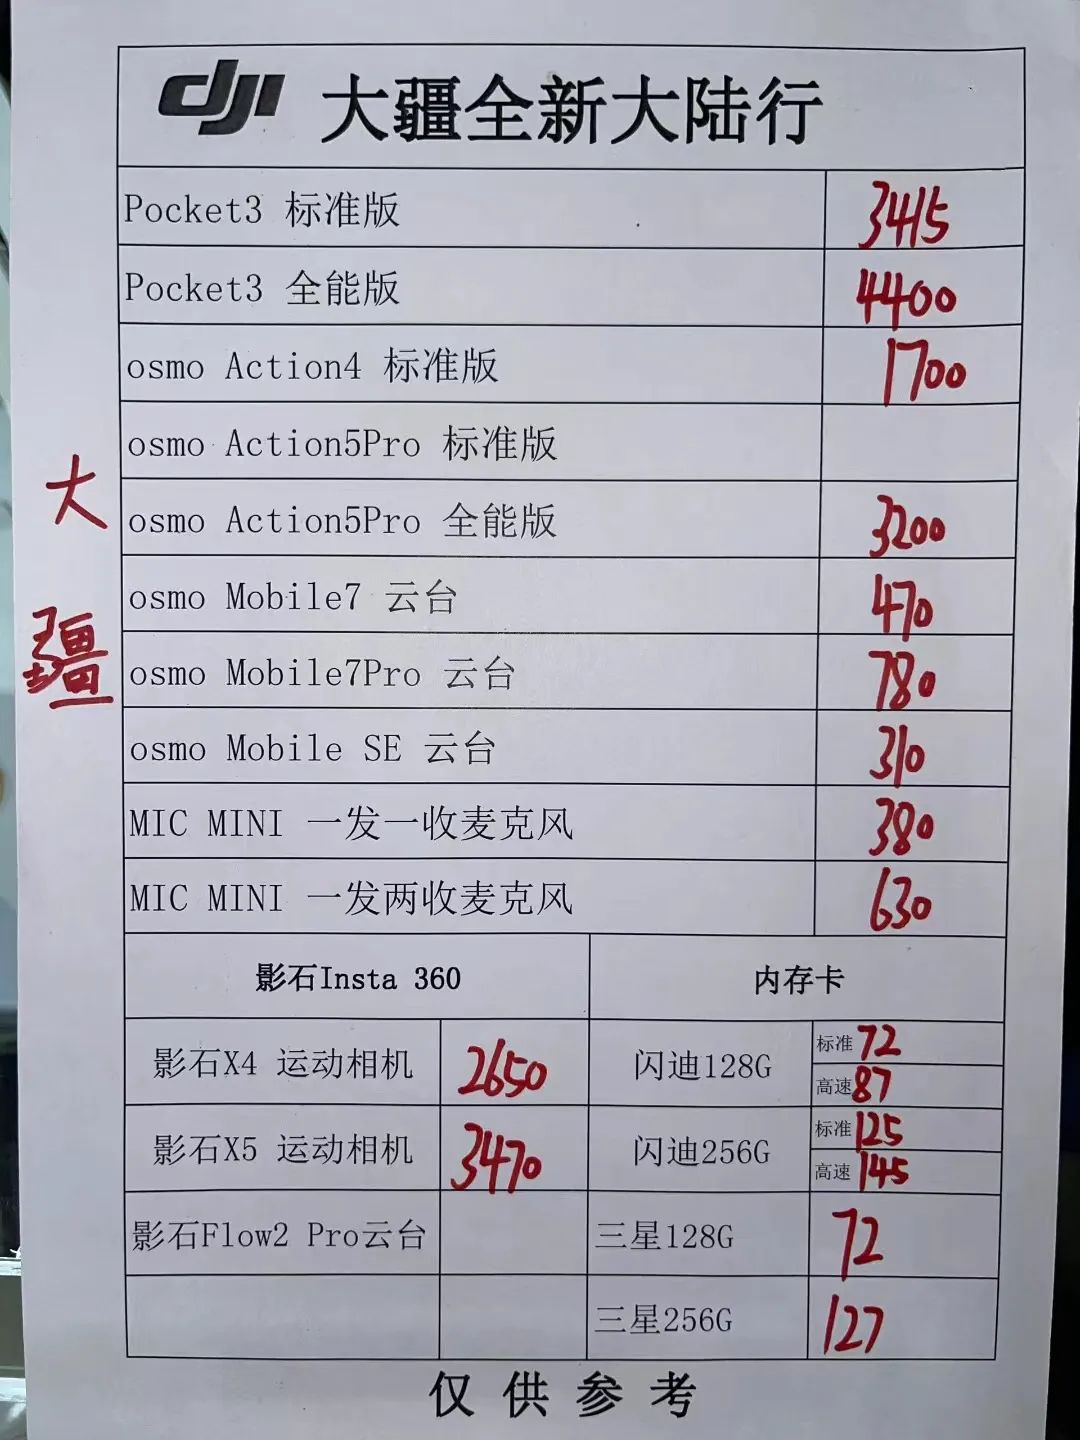 dji 大疆全新大陆行
Pocket3 标准版 3415
Pocket3 全能版 4400
osmo Action4 标准版 1700
osmo Action5Pro 标准版
osmo Action5Pro 全能版 3200
osmo Mobile7 云台 470
osmo Mobile7Pro 云台 780
osmo Mobile SE 云台 310
MIC MINI 一发一收麦克风 380
MIC MINI 一发两收麦克风 630
大疆
影石Insta 360 内存卡
影石X4 运动相机 2650 闪迪128G 标准 72
高速 87
影石X5 运动相机 3470 闪迪256G 标准 125
高速 145
影石Flow2 Pro云台 三星128G 72
三星256G 127
仅供参考